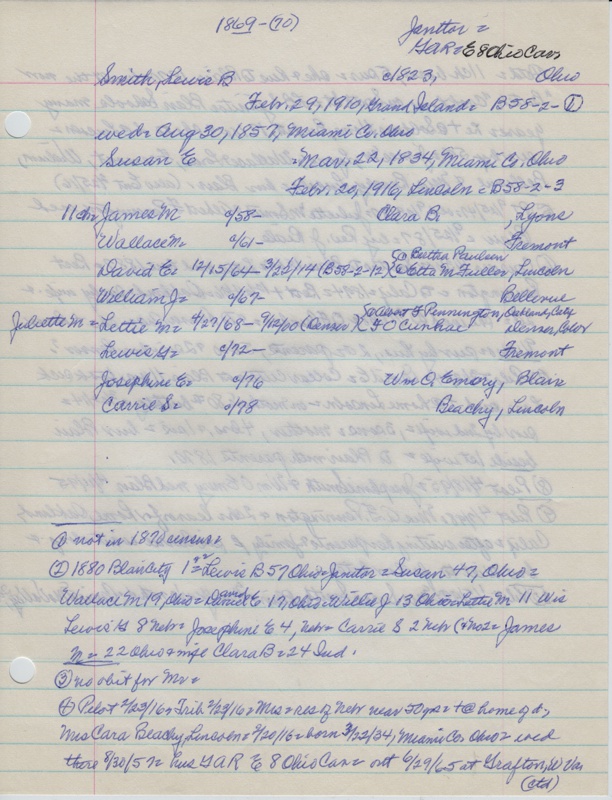 1869-(70)
Janitor =
GAR = E 8 Ohio Cav
Smith, Lewis B c/1823, Ohio
Febr. 29, 1910, Grand Island = B58-2- ①
wed = Aug 30, 1857, Miami Co. Ohio
Susan E = Mar. 22, 1834, Miami Co. Ohio
Febr. 20, 1916, Lincoln = B58-2-3
11 ch = James M c/58- Clara B. , Lyons
Wallace M = c/61- Fremont
David E = 12/15/64 - 3/25/14 (B58-2-12) Bertha Paulsen
Etta M Fuller, Lincoln
William J = c/67- Bellevue
Juliette M = Lettie M = 4/27/68 - 9/12/00 (Denver) Albert F Pennington, Oakland, Calif
F O Denver, Color
Lewis H = c/72- Fremont
Josephine E = c/76 Wm O. Emory, Blair
Carrie S = c/78 Beachy, Lincoln
① not in 1870 census =
② 1880 Blair City 1st = Lewis B 57 Ohio = Janitor = Susan 47, Ohio =
Wallace M 19, Ohio = David E 17, Ohio = Willie J 13 Ohio = Lettie M 11 Wis
Lewis H 8 Nebr = Josephine E 4, Nebr = Carrie S 2 Nebr (#202 = James
M = 22 Ohio = wife Clara B = 24 Ind.
③ no obit for Mr =
④ Pilot 2/23/16 = Trib 2/24/16 = Mrs = res of Nebr near 50 yrs = @ home of d,
Mrs Cara Beachy, Lincoln = 2/20/16 = born 3/22/34, Miami Co. Ohio = wed
there 8/30/57 = hus GAR E 8 Ohio Cav = out 6/29/65 at Grafton, W Va
(ctd)